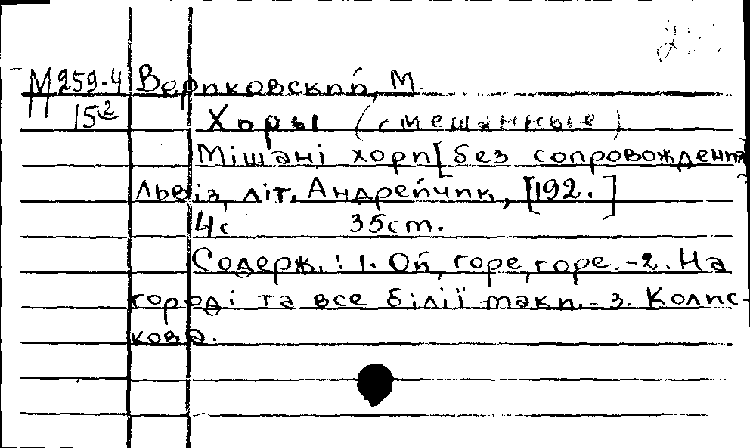 М259-4 Вериковский, М
15² Хоры (смешанные)
Мішані хори [без сопровождения]
Львів, літ. Андрейчик, [192. ]
4с 35cm.
Содерж.: 1. Ой, горе, горе. -2. На
городі та все білії маки. - 3. Колис-
кова.